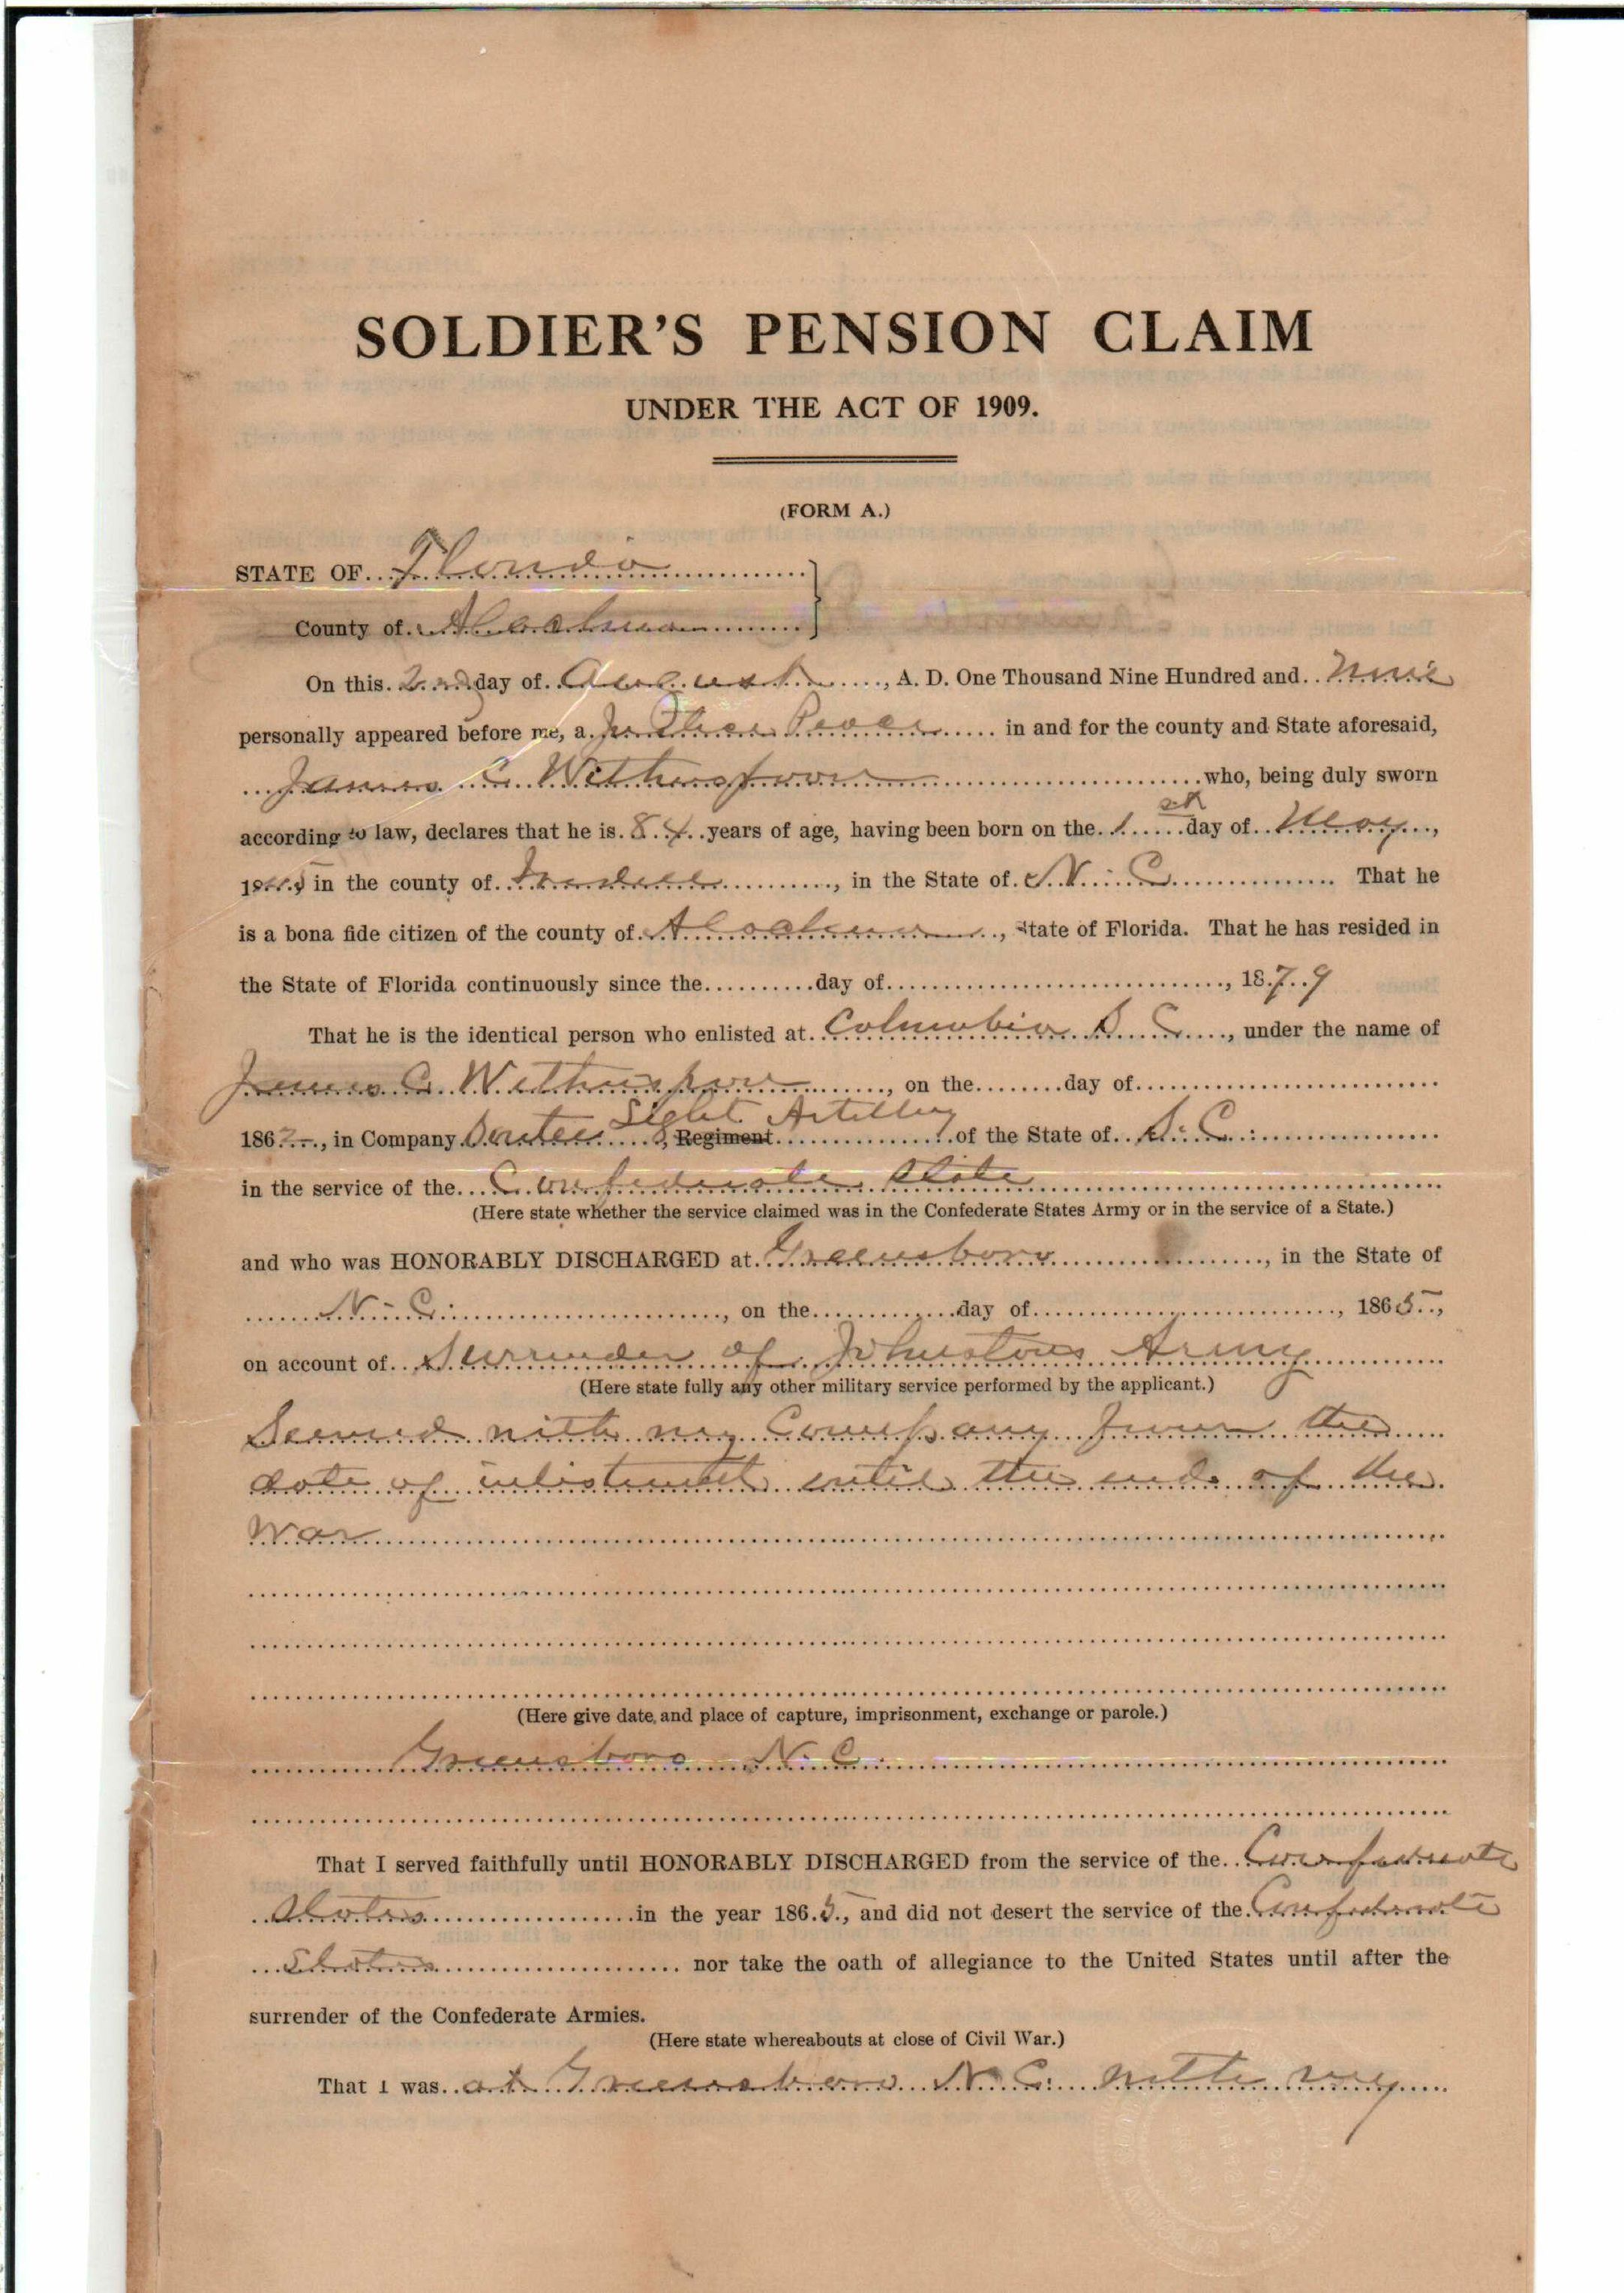 SOLDIER'S PENSION CLAIM
UNDER THE ACT OF 1909.
(FORM A.)
STATE OF Florida
County of Alachua
On this 2nd day of August, A. D. One Thousand Nine Hundred and Nine
personally appeared before me, a Justice Peace in and for the county and State aforesaid,
James C. Witherspoon who, being duly sworn
according to law, declares that he is 84 years of age, having been born on the 1st day of May,
in the county of Iredell, in the State of N. C. That he
is a bona fide citizen of the county of Alachua, State of Florida. That he has resided in
the State of Florida continuously since the day of, 1879
That he is the identical person who enlisted at Columbia S. C., under the name of
James C. Witherspoon, on the day of
1862, in Company Light Artillery, Regiment of the State of S. C.
in the service of the Confederate State
(Here state whether the service claimed was in the Confederate States Army or in the service of a State.)
and who was HONORABLY DISCHARGED at Greensboro, in the State of
N. C., on the day of, 1865,
on account of Surrender of Johnstons Army
(Here state fully any other military service performed by the applicant.)
Served with my Company from the
date of enlistment until the end of the
War
(Here give date, and place of capture, imprisonment, exchange or parole.)
Greensboro N. C.
That I served faithfully until HONORABLY DISCHARGED from the service of the Confederate
States in the year 1865, and did not desert the service of the Confederate
States nor take the oath of allegiance to the United States until after the
surrender of the Confederate Armies.
(Here state whereabouts at close of Civil War.)
That I was at Greensboro N. C. with my